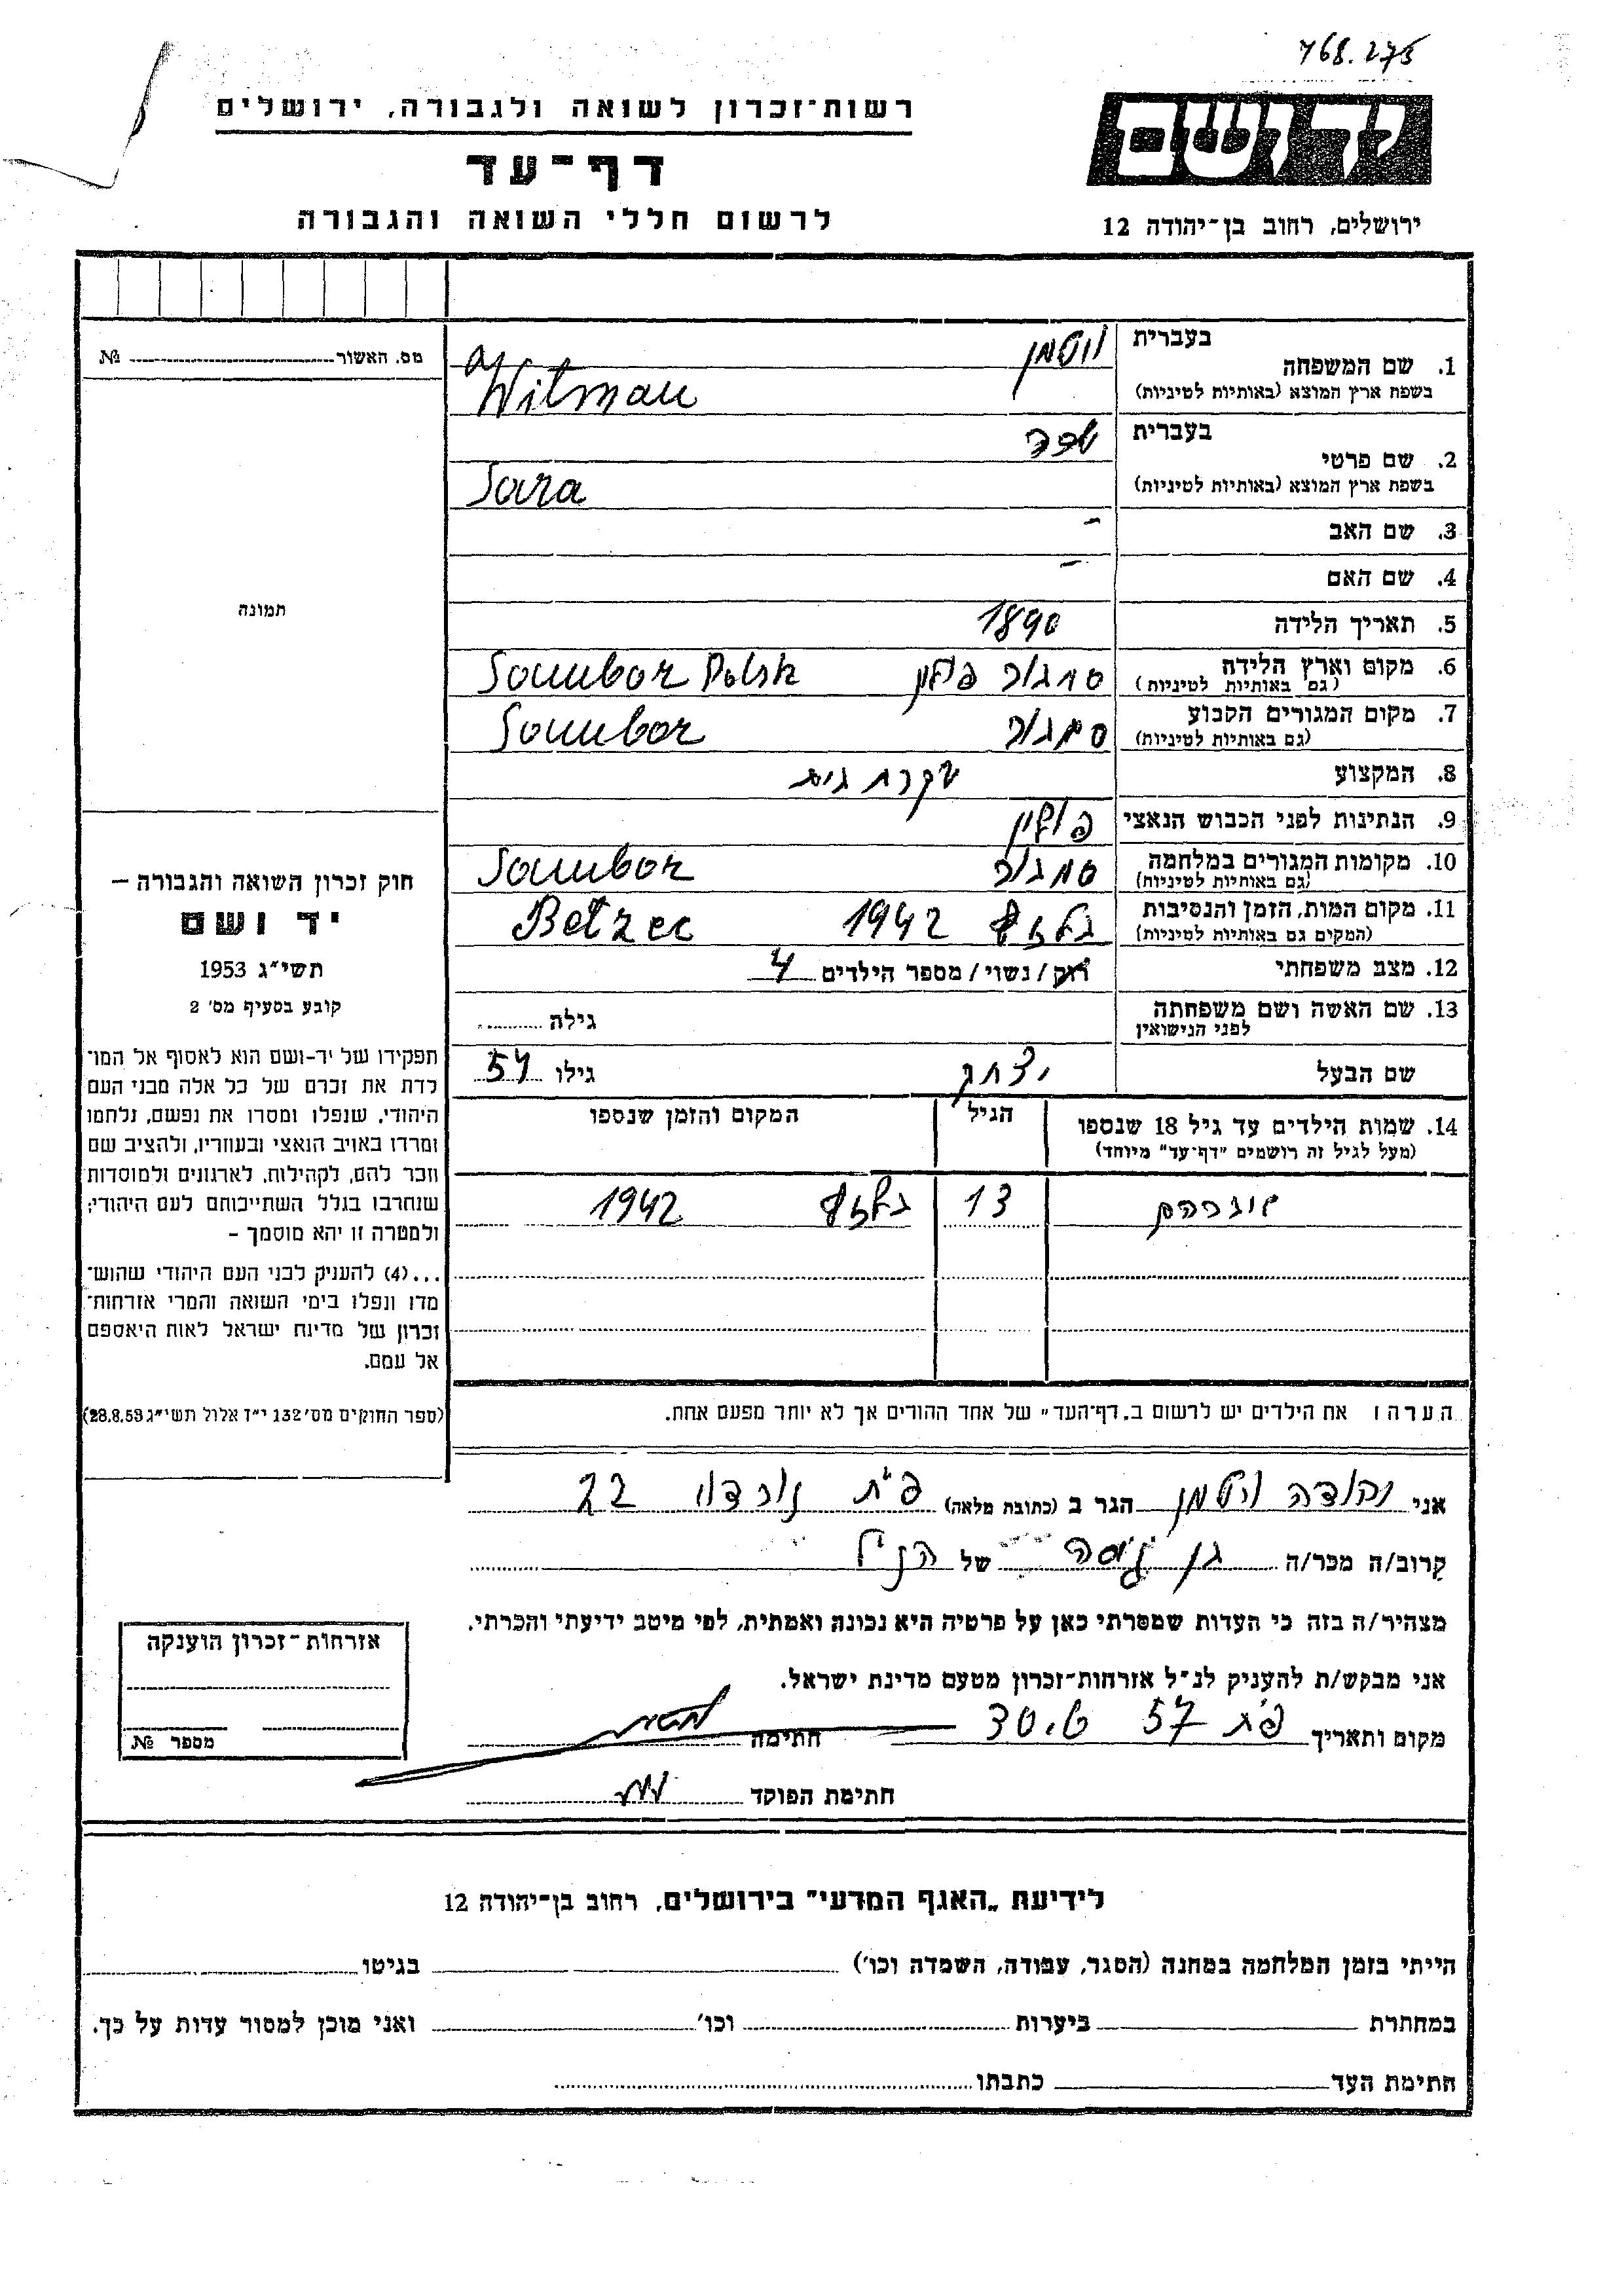 768.275
רשות־זכרון לשואה ולגבורה, ירושלים
דף־עד
לרשום חללי השואה והגבורה
יד ושם
ירושלים, רחוב בן־יהודה 12
מס. האשור № 
1. שם המשפחה בעברית ויטמן
בשפת ארץ המוצא (באותיות לטיניות) Witman
2. שם פרטי בעברית שרה
בשפת ארץ המוצא (באותיות לטיניות) Sara
3. שם האב –
4. שם האם –
5. תאריך הלידה 1890
6. מקום וארץ הלידה (גם באותיות לטיניות) סמבור פולין Sambor Polsk
7. מקום המגורים הקבוע (גם באותיות לטיניות) סמבור Sambor
8. המקצוע עקרת בית
9. הנתינות לפני הכבוש הנאצי פולין
10. מקומות המגורים במלחמה (גם באותיות לטיניות) סמבור Sambor
11. מקום המות, הזמן והנסיבות (המקום גם באותיות לטיניות) 1942 Betzec
12. מצב משפחתי רוק / נשוי / מספר הילדים 4
13. שם האשה ושם משפחתה לפני הנישואין גילה
שם הבעל יצחק גילו 54
14. שמות הילדים עד גיל 18 שנספו הגיל המקום והזמן שנספו
(מעל לגיל זה רושמים "דף־עד" מיוחד)
אברהם 13 1942
הערה: את הילדים יש לרשום ב„דף־העד" של אחד ההורים אך לא יותר מפעם אחת.
תמונה
חוק זכרון השואה והגבורה –
יד ושם
תשי״ג 1953
קובע בסעיף מס׳ 2
תפקידו של יד־ושם הוא לאסוף אל המו־
לדת את זכרם של כל אלה מבני העם
היהודי, שנפלו ומסרו את נפשם, נלחמו
ומרדו באויב הנאצי ובעוזריו, ולהציב שם
וזכר להם, לקהילות, לארגונים ולמוסדות
שנחרבו בגלל השתייכותם לעם היהודי;
ולמטרה זו יהא מוסמך –
...(4) להעניק לבני העם היהודי שהוש־
מדו ונפלו בימי השואה והמרי אזרחות־
זכרון של מדינת ישראל לאות היאספם
אל עמם.
(ספר החוקים מס׳ 132 י״ז אלול תשי״ג 28.8.53)
אני יהודה ויטמן הגר ב (כתובת מלאה) פ״ת נורדוי 22
קרוב/ה מכר/ה בן של הנ״ל
מצהיר/ה בזה כי העדות שמסרתי כאן על פרטיה היא נכונה ואמתית, לפי מיטב ידיעתי והכרתי.
אני מבקש/ת להעניק לנ״ל אזרחות־זכרון מטעם מדינת ישראל.
מקום ותאריך פ״ת 57 חתימה
חתימת הפוקד
אזרחות־זכרון הוענקה
מספר №
לידיעת „האגף המדעי" בירושלים, רחוב בן־יהודה 12
הייתי בזמן המלחמה במחנה (הסגר, עבודה, השמדה וכו׳) בגיטו
במחתרת ביערות וכו׳ ואני מוכן למסור עדות על כך.
חתימת העד כתבתו